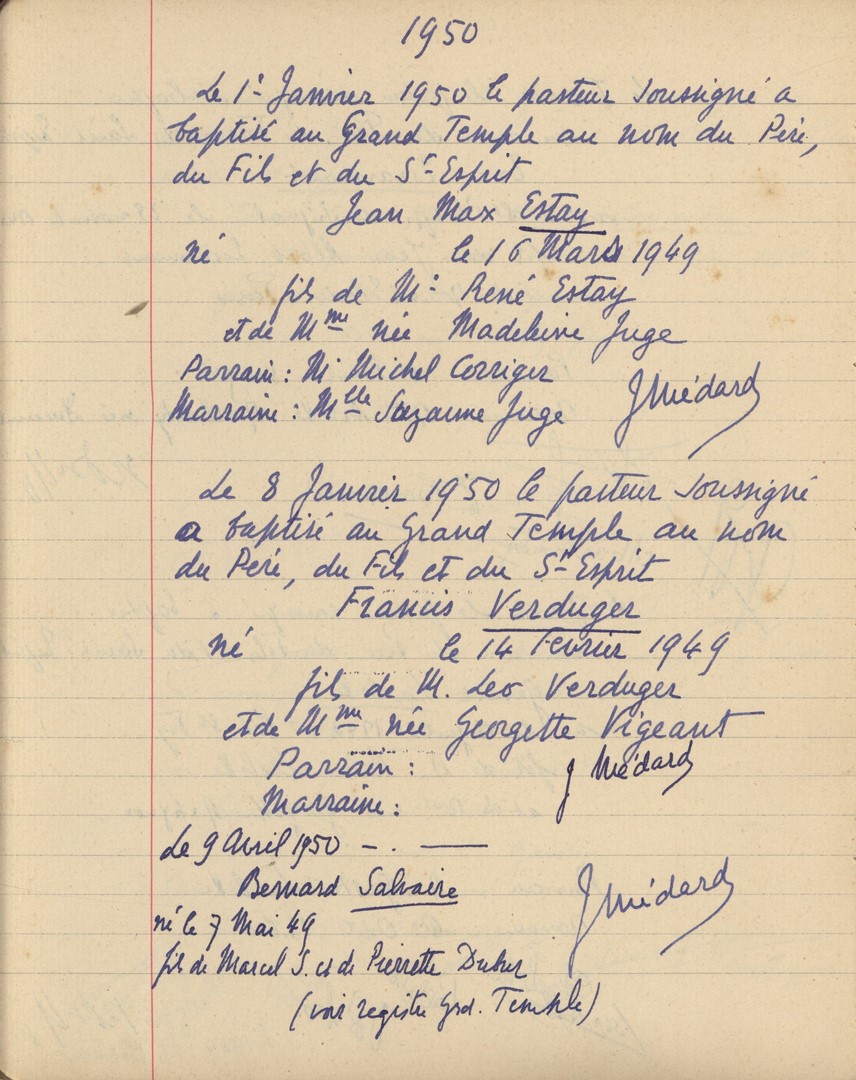 1950
Le 1er Janvier 1950 le pasteur soussigné a
baptisé au Grand Temple au nom du Père,
du Fils et du St-Esprit
Jean Max Estay
né le 16 Mars 1949
fils de Mr René Estay
et de Mme née Madeleine Juge
Parrain : Mr Michel Corriger
Marraine : Mlle Suzanne Juge
JMédard
Le 8 Janvier 1950 le pasteur soussigné
a baptisé au Grand Temple au nom
du Père, du Fils et du St-Esprit
Francis Verduger
né le 14 Février 1949
fils de M. Leo Verduger
et de Mme née Georgette Vigeant
Parrain :
J Médard
Marraine :
Le 9 Avril 1950 - . —
Bernard Salvaire
JMédard
né le 7 Mai 49
fils de Marcel S. et de Pierrette
(voir registre Grd. Temple)